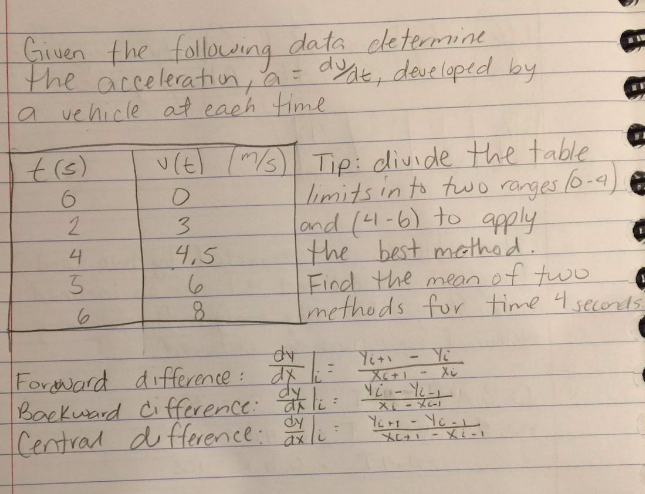 Given the following data determine
the acceleration, a = dv/dt, developed by
a vehicle at each time
t(s) v(t) (m/s)
0 0
2 3
4 4,5
5 6
6 8
Tip: divide the table
limits in to two ranges (0-4)
and (4-6) to apply
the best method.
Find the mean of two
methods for time 4 seconds
Forward difference: dy/dx|i = Yi+1 - Yi / Xi+1 - Xi
Backward difference: dy/dx|i = Yi - Yi-1 / Xi - Xi-1
Central difference: dy/dx|i = Yi+1 - Yi-1 / Xi+1 - Xi-1